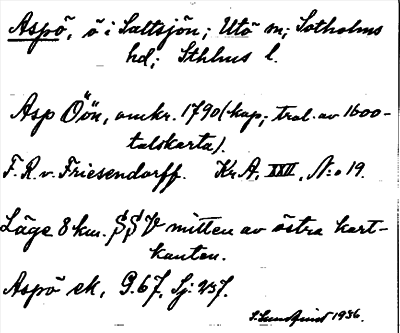 Aspö, ö i Saltsjön; Utö sn; Sotholms
hd; Sthlms l.
Asp Öön, omkr. 1790 (kop. trol. av 1600-
talskarta).
F. R. v. Friesendorff. Kr A, XXII, N:o 19.
Läge 8 km. SSV mitten av östra kart-
kanten.
Aspö ek. 9.67, Sj: 237.
S. Lundqvist 1936.